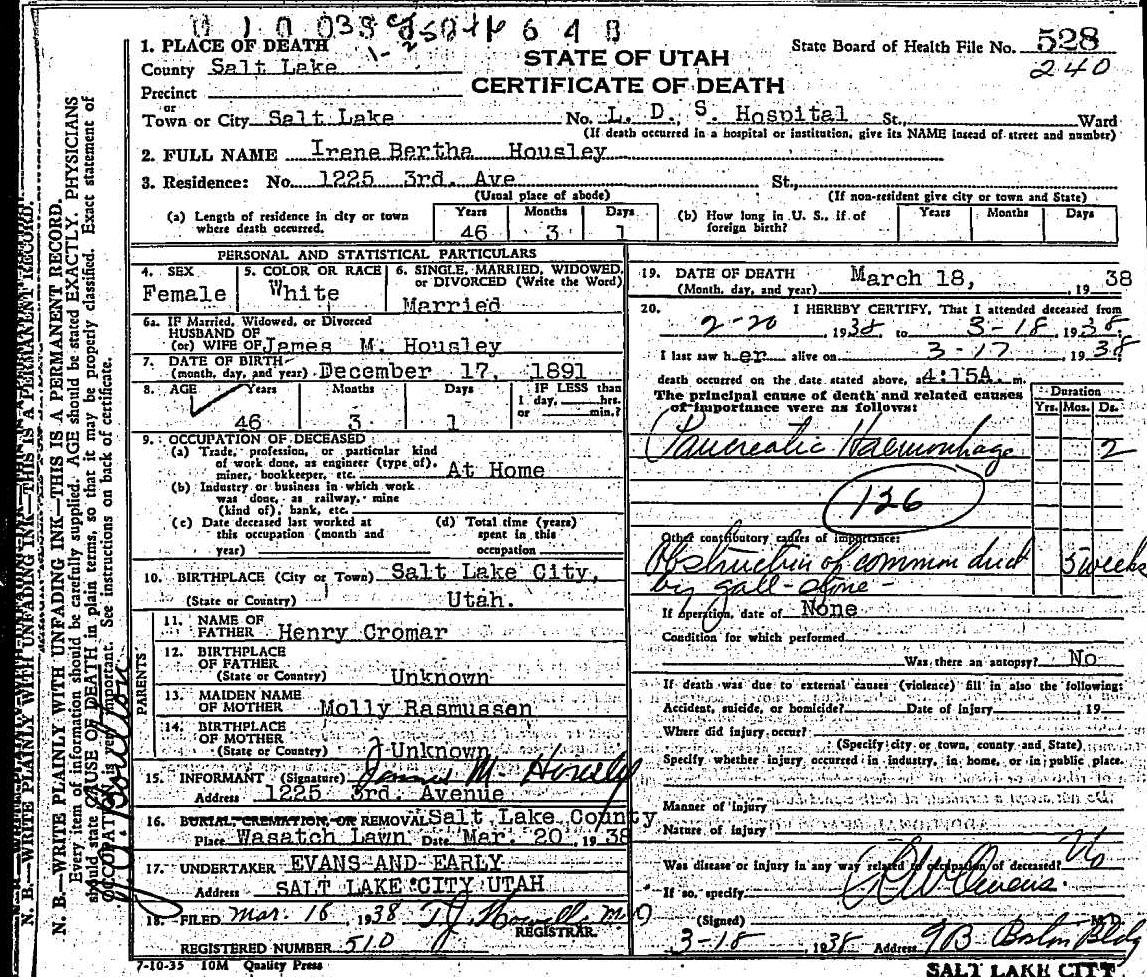 STATE OF UTAH
CERTIFICATE OF DEATH
State Board of Health File No. 528
240
1. PLACE OF DEATH
County Salt Lake
Precinct
or
Town or City Salt Lake No. L. D. S. Hospital St., Ward
(If death occurred in a hospital or institution, give its NAME instead of street and number)
2. FULL NAME Irene Bertha Housley
3. Residence: No. 1225 3rd. Ave St.,
(Usual place of abode) (If non-resident give city or town and State)
(a) Length of residence in city or town where death occurred. Years 46 Months 3 Days 1
(b) How long in U. S., if of foreign birth? Years Months Days
PERSONAL AND STATISTICAL PARTICULARS
4. SEX Female
5. COLOR OR RACE White
6. SINGLE, MARRIED, WIDOWED, or DIVORCED (Write the Word) Married
6a. IF Married, Widowed, or Divorced
HUSBAND OF
(or) WIFE OF James M. Housley
7. DATE OF BIRTH
(month, day, and year) December 17, 1891
8. AGE Years 46 Months 3 Days 1 IF LESS than 1 day, hrs. or min.?
9. OCCUPATION OF DECEASED
(a) Trade, profession, or particular kind
of work done, as engineer (type of),
miner, bookkeeper, etc. At Home
(b) Industry or business in which work
was done, as railway, mine
(kind of), bank, etc.
(c) Date deceased last worked at
this occupation (month and
year)
(d) Total time (years)
spent in this
occupation
10. BIRTHPLACE (City or Town) Salt Lake City,
(State or Country) Utah.
PARENTS
11. NAME OF
FATHER Henry Cromar
12. BIRTHPLACE
OF FATHER
(State or Country) Unknown
13. MAIDEN NAME
OF MOTHER Molly Rasmussen
14. BIRTHPLACE
OF MOTHER
(State or Country) Unknown
15. INFORMANT (Signature) James M. Housley
Address 1225 3rd. Avenue
16. BURIAL, CREMATION, OR REMOVAL Salt Lake County
Place Wasatch Lawn Date Mar. 20, 1938
17. UNDERTAKER EVANS AND EARLY
Address SALT LAKE CITY UTAH
18. FILED Mar. 18, 1938 T.J. Howells M.D
REGISTRAR.
REGISTERED NUMBER 510
7-10-35 10M Quality Press
19. DATE OF DEATH March 18, 1938
(Month, day, and year)
20. I HEREBY CERTIFY, That I attended deceased from
2-20, 1938, to 3-18 1938.
I last saw her alive on 3-17, 1938
death occurred on the date stated above, at 4:15A. m.
The principal cause of death and related causes
of importance were as follows:
Duration
Yrs. Mos. Ds.
Pancreatic Haemorrhage 2
126
Other contributory causes of importance:
Obstruction of common duct 5 weeks
by gall-stone-
If operation, date of None
Condition for which performed
Was there an autopsy? No
If death was due to external causes (violence) fill in also the following:
Accident, suicide, or homicide? Date of injury 19
Where did injury occur?
(Specify city or town, county and State)
Specify whether injury occurred in industry, in home, or in public place.
Manner of injury
Nature of injury
Was disease or injury in any way related to occupation of deceased? No
If so, specify
(Signed) Owens M.D.
3-18 1938 Address Boston Bldg
SALT LAKE CITY
N. B.—WRITE PLAINLY WITH UNFADING INK—THIS IS A PERMANENT RECORD.
Every item of information should be carefully supplied. AGE should be stated EXACTLY. PHYSICIANS
should state CAUSE OF DEATH in plain terms, so that it may be properly classified. Exact statement of
OCCUPATION is very important. See instructions on back of certificate.